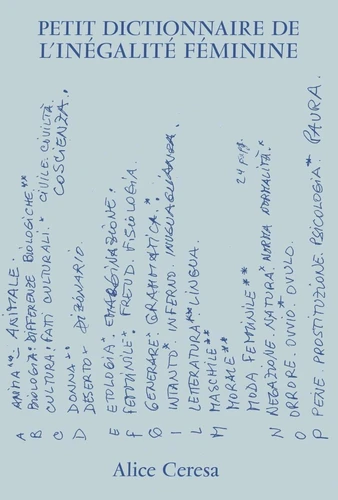 PETIT DICTIONNAIRE DE
L'INÉGALITÉ FÉMININE
A ANIMA** ANIMALE.
B BIOLOGIA* DIFFERENZE BIOLOGICHE**
C CULTURA: FATTI CULTURALI.* CIVILE. CIVILTÀ.
COSCIENZA.
D DONNA** DIZIONARIO.
DESERTO*
E ETOLOGIA* EMARGINAZIONE.
F FEMMINILE* FREUD. FISIOLOGIA.
G GENERARE* GRAMMATICA.*
I INTANTO* INFERNO. INUGUAGLIANZA.
L LETTERATURA** LINGUA.
M MASCHILE**
MORALE**
MODA FEMMINILE**
N NEGAZIONE. NATURA* NORMA NORMALITÀ.*
O ORRORE. OVVIO* OVULO.
P PENE. PROSTITUZIONE. PSICOLOGIA* PAURA.
Alice Ceresa